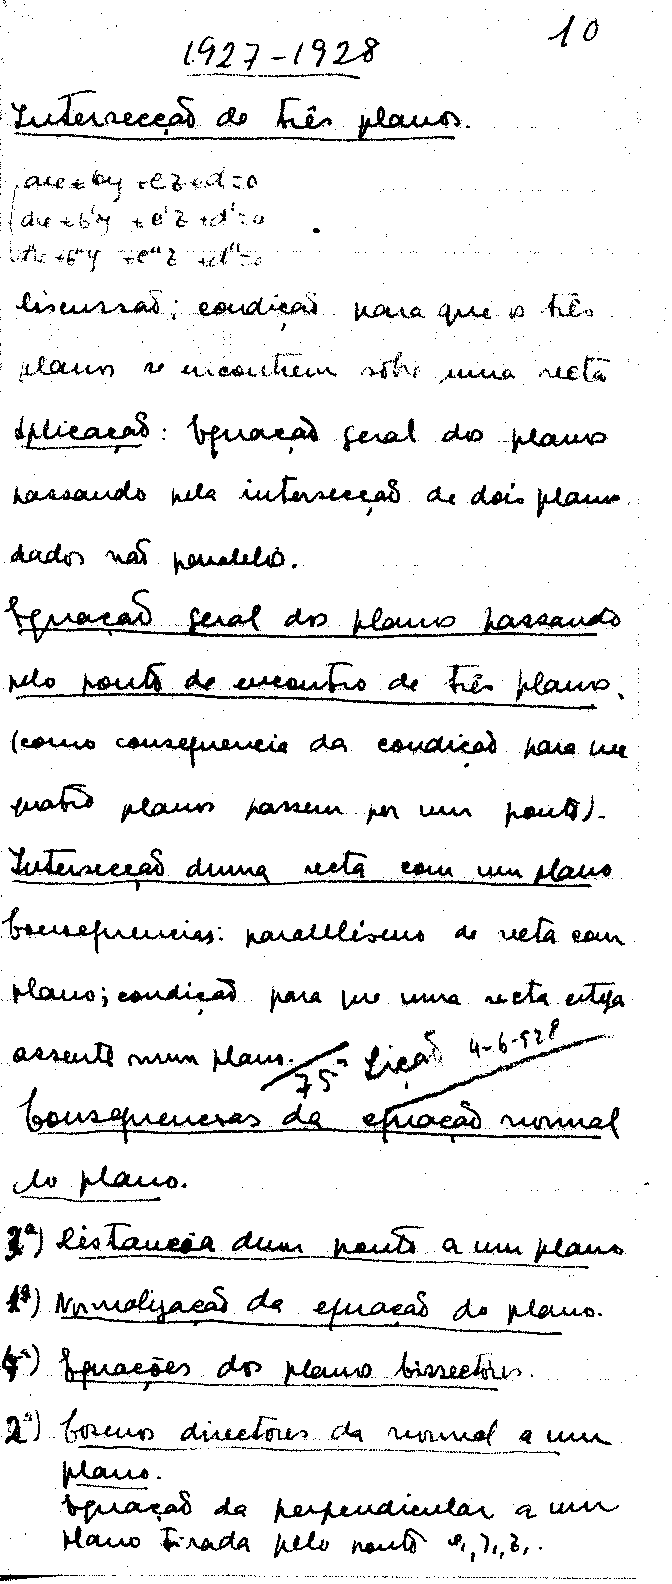 10
1927-1928
Intersecção de três planos.
ax+by+cz+d=0
a'x+b'y+c'z+d'=0
a''x+b''y+c''z+d''=0
Discussão; condição para que os três
planos se encontrem sôbre uma recta
Aplicação: Equação geral dos planos
passando pela intersecção de dois planos
dados não paralelos.
Equação geral dos planos passando
pelo ponto de encontro de três planos.
(como consequencia da condição para que
quatro planos passem por um ponto).
Intersecção duma recta com um plano
Consequencias: paralelismo de recta com
plano; condição para que uma recta esteja
assente num plano.
75ª Lição 4-6-928
Consequencias da equação normal
do plano.
3ª) Distancia dum ponto a um plano
1ª) Normalização da equação do plano.
4ª) Equações dos planos bissectores.
2ª) Cosenos directores da normal a um
plano.
Equação da perpendicular a um
plano tirada pelo ponto x₁, y₁, z₁.